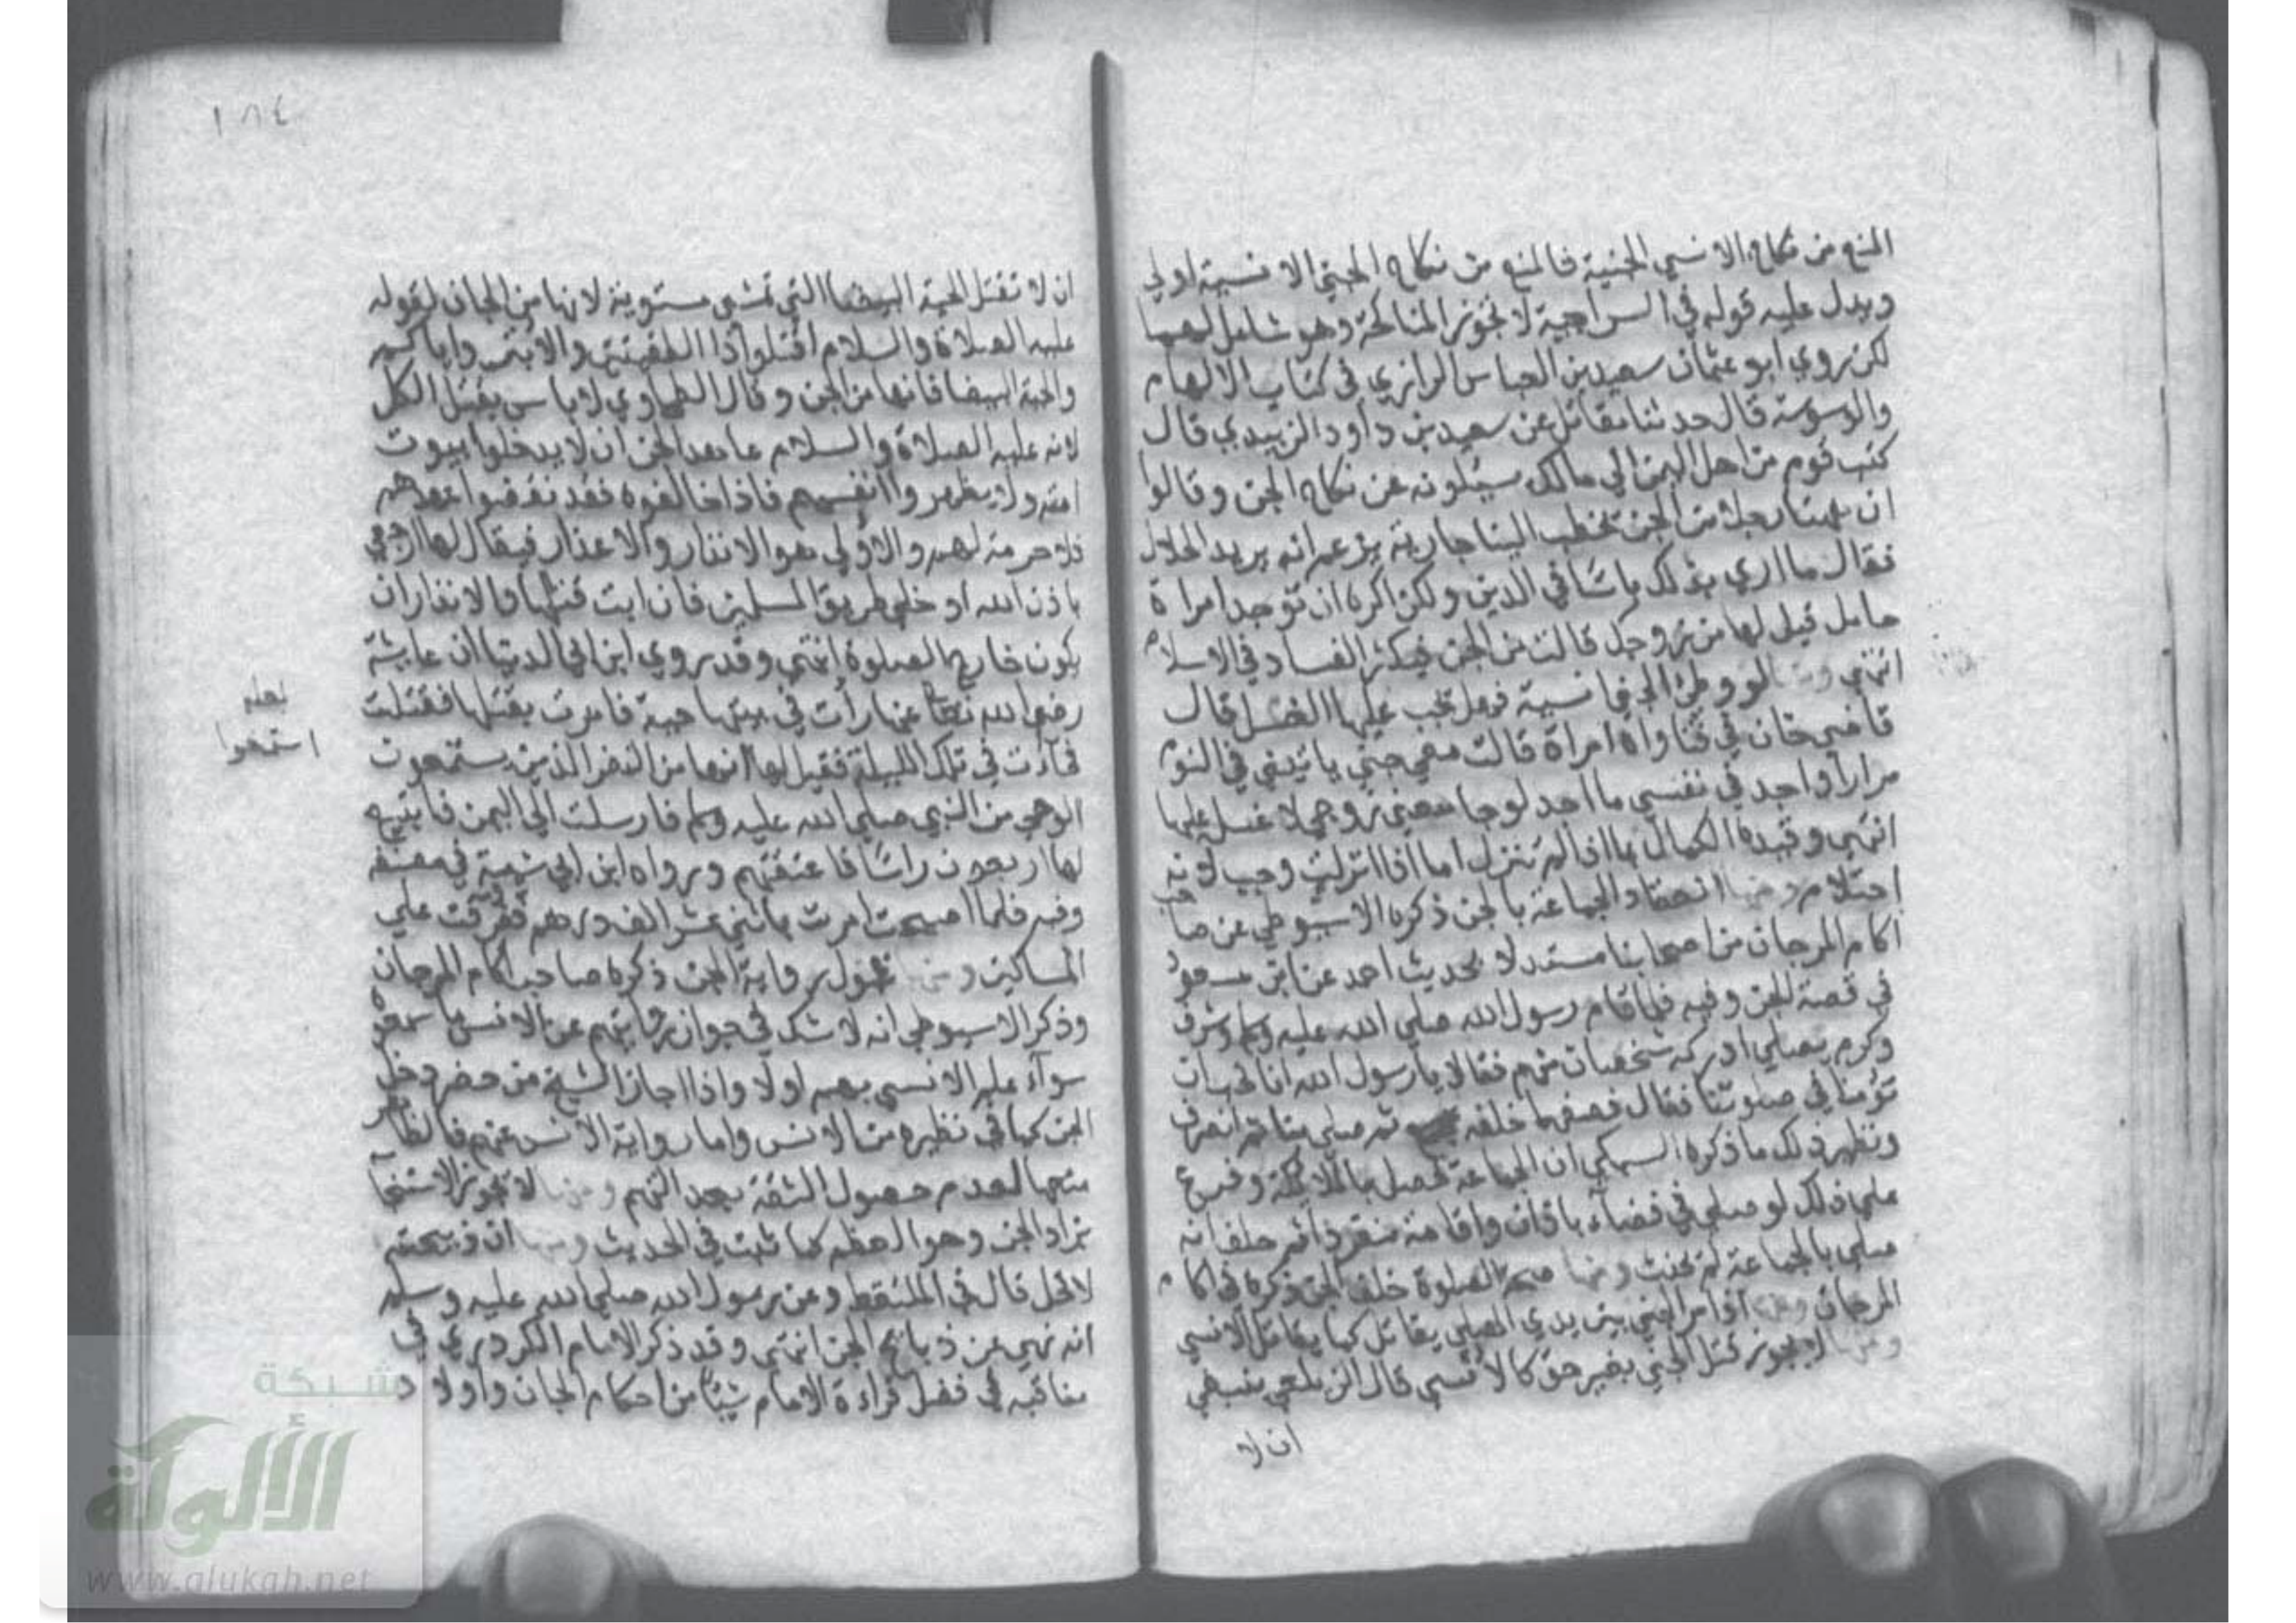 المنع من نكاح الانسي الجنية فالمنع من نكاح الجني الانسية اولي
ويدل عليه قوله في السراجية لا تجوز المناكحة وهو شامل لهما
لكن روي ابو عثمان سعيد بن العباس الرازي في كتاب الالهام
والوسوسة قال حدثنا مقاتل عن سعيد بن داود الزبيدي قال
كتب قوم من اهل اليمن الي مالك سيئلونه عن نكاح الجن وقالوا
ان ههنا رجلا من الجن يخطب الينا جارية يزعم انه يريد الحلال
فقال ما اري بذلك باسا في الدين ولكن اكره ان توجد امراة
حامل قيل لها من زوجك قالت من الجن فيكثر الفساد في الاسلام
انتهي ومنها لو وطئ الجني انسية فهل تجب عليها الغسل قال
قاضي خان في فتاواه امراة قالت معي جني ياتيني في النوم
مرارا واجد في نفسي ما اجد لو جامعني زوجي لا غسل عليها
انتهي وقيده الكمال بما اذا لم تنزل اما اذا انزلت وجب لانه
احتلام ومنها انعقاد الجماعة بالجن ذكره الاسيوطي عن صاحب
اكام المرجان من اصحابنا مستدلا بحديث احمد عن ابن مسعود
في قصة الجن وفيه فلما قام رسول الله صلي الله عليه وسلم وشرف
وكرم يصلي ادركه شخصان منهم فقالا يا رسول الله انا نحب ان
تؤمنا في صلوتنا فقال فصفهما خلفه ثم صلي بنا ثم انصرف
ونظير ذلك ما ذكره السبكي ان الجماعة تحصل بالملائكة وفرع
علي ذلك لو صلي في فضاء باذان واقامة منفردا ثم حلف انه
صلي بالجماعة لم يحنث ومنها صحة الصلوة خلف الجن ذكره في اكام
المرجان ومنها اذا مر الجني بين يدي المصلي يقاتل كما يقاتل الانسي
ومنها لا يجوز قتل الجني بغير حق كالانسي قال الزيلعي ينبغي
ان لا
١٨٤
ان لا تقتل الحية البيضا التي تمشي مستوية لانها من الجان لقوله
عليه الصلاة والسلام اقتلوا ذا الطفيتين والابتر واياكم
والحية البيضا فانها من الجن وقال الطحاوي لا باس بقتل الكل
لانه عليه الصلاة والسلام عاهد الجن ان لا يدخلوا بيوت
امته ولا يظهروا انفسهم فاذا خالفوه فقد نقضوا عهدهم
فلا حرمة لهم والاولي هو الانذار والاعذار فيقال لها ارجعي
باذن الله او خلي طريق المسلمين فان ابت قتلها والانذار ان
يكون خارج الصلوة انتهي وقد روي ابن ابي الدنيا ان عايشة
رضي الله تعا عنها رأت في بيتها حية فامرت بقتلها فقتلت
فأتت في تلك الليلة فقيل لها انها من النفر الذين يستمعون
لعله
استمعوا
الوحي من النبي صلي الله عليه وسلم فارسلت الي اليمن فابتيع
لها اربعون راسا فاعتقتهم ورواه ابن ابي شيبة في مصنفه
وفيه فلما اصبحت امرت باثني عشر الف درهم ففرقت علي
المساكين ومنها قبول رواية الجن ذكره صاحب اكام المرجان
وذكر الاسيوطي انه لا شك في جواز روايتهم عن الانس ما سمعوه
سوآء علم الانسي بهم اولا واذا اجاز الشيخ من حضر دخل
الجن كما في نظيره من الانس واما رواية الانس عنهم فالظاهر
منعها لعدم حصول الثقة بعدالتهم ومنها لا يجوز الاستنجا
بزاد الجن وهو العظم كما ثبت في الحديث ومنها ان ذبيحته
لا تحل قال في الملتقط وعن رسول الله صلي الله عليه وسلم
انه نهي عن ذبايح الجن انتهي وقد ذكر الامام الكردري في
مناقبه في فضل قراءة الامام شيئا من احكام الجان واولاد
شبكة
الألوكة
www.alukah.net